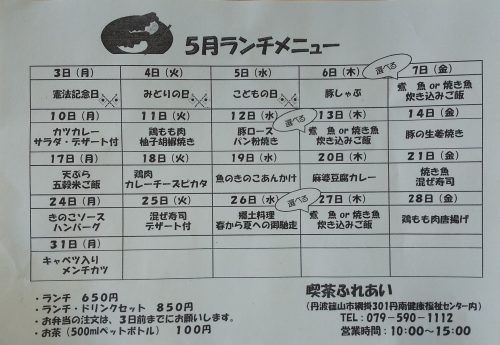 5月ランチメニュー
3日(月) 4日(火) 5日(水) 6日(木) 選べる 7日(金)
憲法記念日 みどりの日 こどもの日 豚しゃぶ 煮 魚 or 焼き魚
炊き込みご飯
10日(月) 11日(火) 12日(水) 選べる 13日(木) 14日(金)
カツカレー 鶏もも肉 豚ロース 煮 魚 or 焼き魚 豚の生姜焼き
サラダ・デザート付 柚子胡椒焼き パン粉焼き 炊き込みご飯
17日(月) 18日(火) 19日(水) 20日(木) 21日(金)
天ぷら 鶏肉 魚のきのこあんかけ 麻婆豆腐カレー 焼き魚
五穀米ご飯 カレーチーズピカタ 混ぜ寿司
24日(月) 25日(火) 26日(水) 選べる 27日(木) 28日(金)
きのこソース 混ぜ寿司 郷土料理 煮 魚 or 焼き魚 鶏もも肉唐揚げ
ハンバーグ デザート付 春から夏への御馳走 炊き込みご飯
31日(月)
キャベツ入り
メンチカツ
・ランチ 650円
・ランチ・ドリンクセット 850円
・お弁当の注文は、3日前までにお願いします。
・お茶(500mlペットボトル) 100円
喫茶ふれあい
(丹波篠山市網掛301丹南健康福祉センター内)
TEL:079-590-1112
営業時間:10:00~15:00